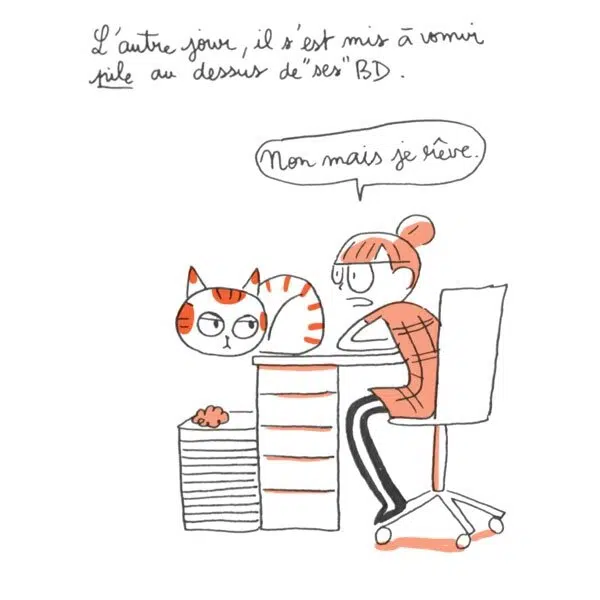 L'autre jour, il s'est mis à vomir
pile au dessus de "ses" BD.
Non mais je rêve.